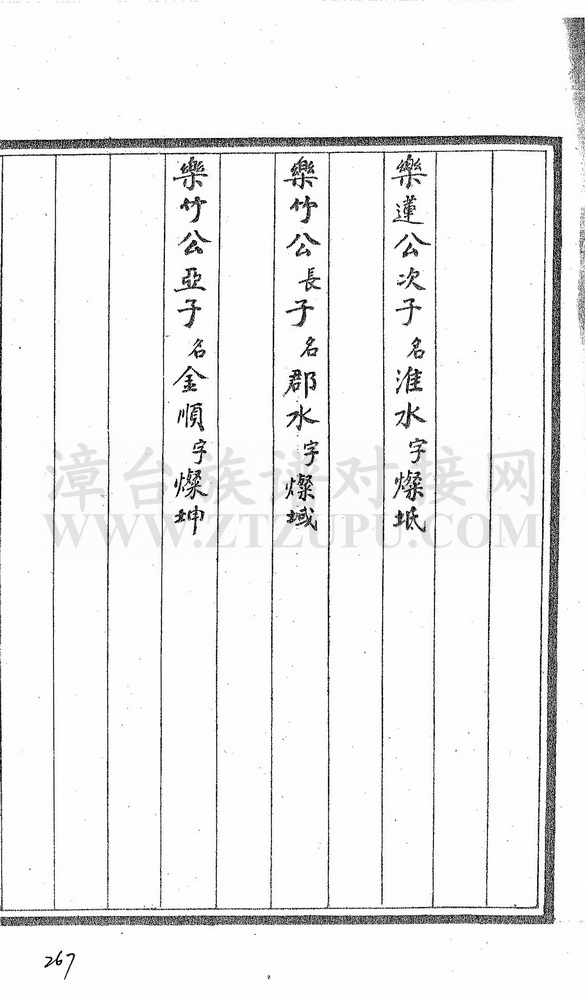 樂蓮公次子名淮水字燦坻
樂竹公長子名郡水字燦域
樂竹公亞子名金順字燦坤
漳台族谱对接网
WWW.ZTZUPU.COM
267